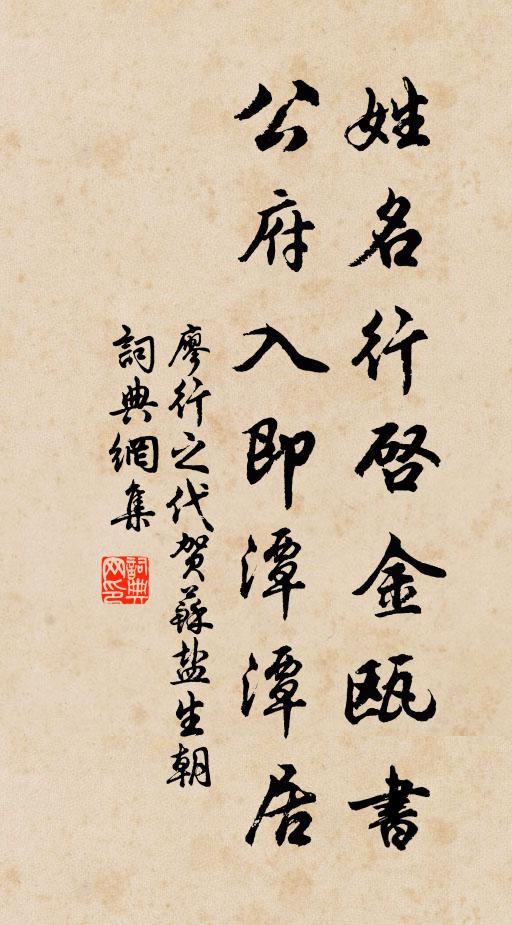 姓名行啓金甌書
公府入即潭潭居
廖行之代賀蘇盐生朝
詞典網集
詞典网印